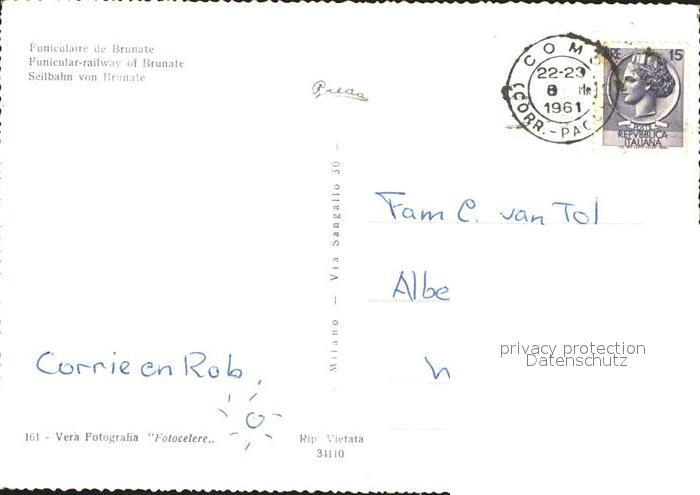 Funiculaire de Brunate
Funicular-railway of Brunate
Seilbahn von Brunate
COMO
22-23
8
1961
CORR.-PAC
LIRE 15
POSTE
REPVBBLICA
ITALIANA
- Milano — Via Sangallo 30 -
Fam C. van Tol
Albe
privacy protection
Datenschutz
Corrie en Rob.
161 - Vera Fotografia "Fotocelere„
Rip. Vietata
34110